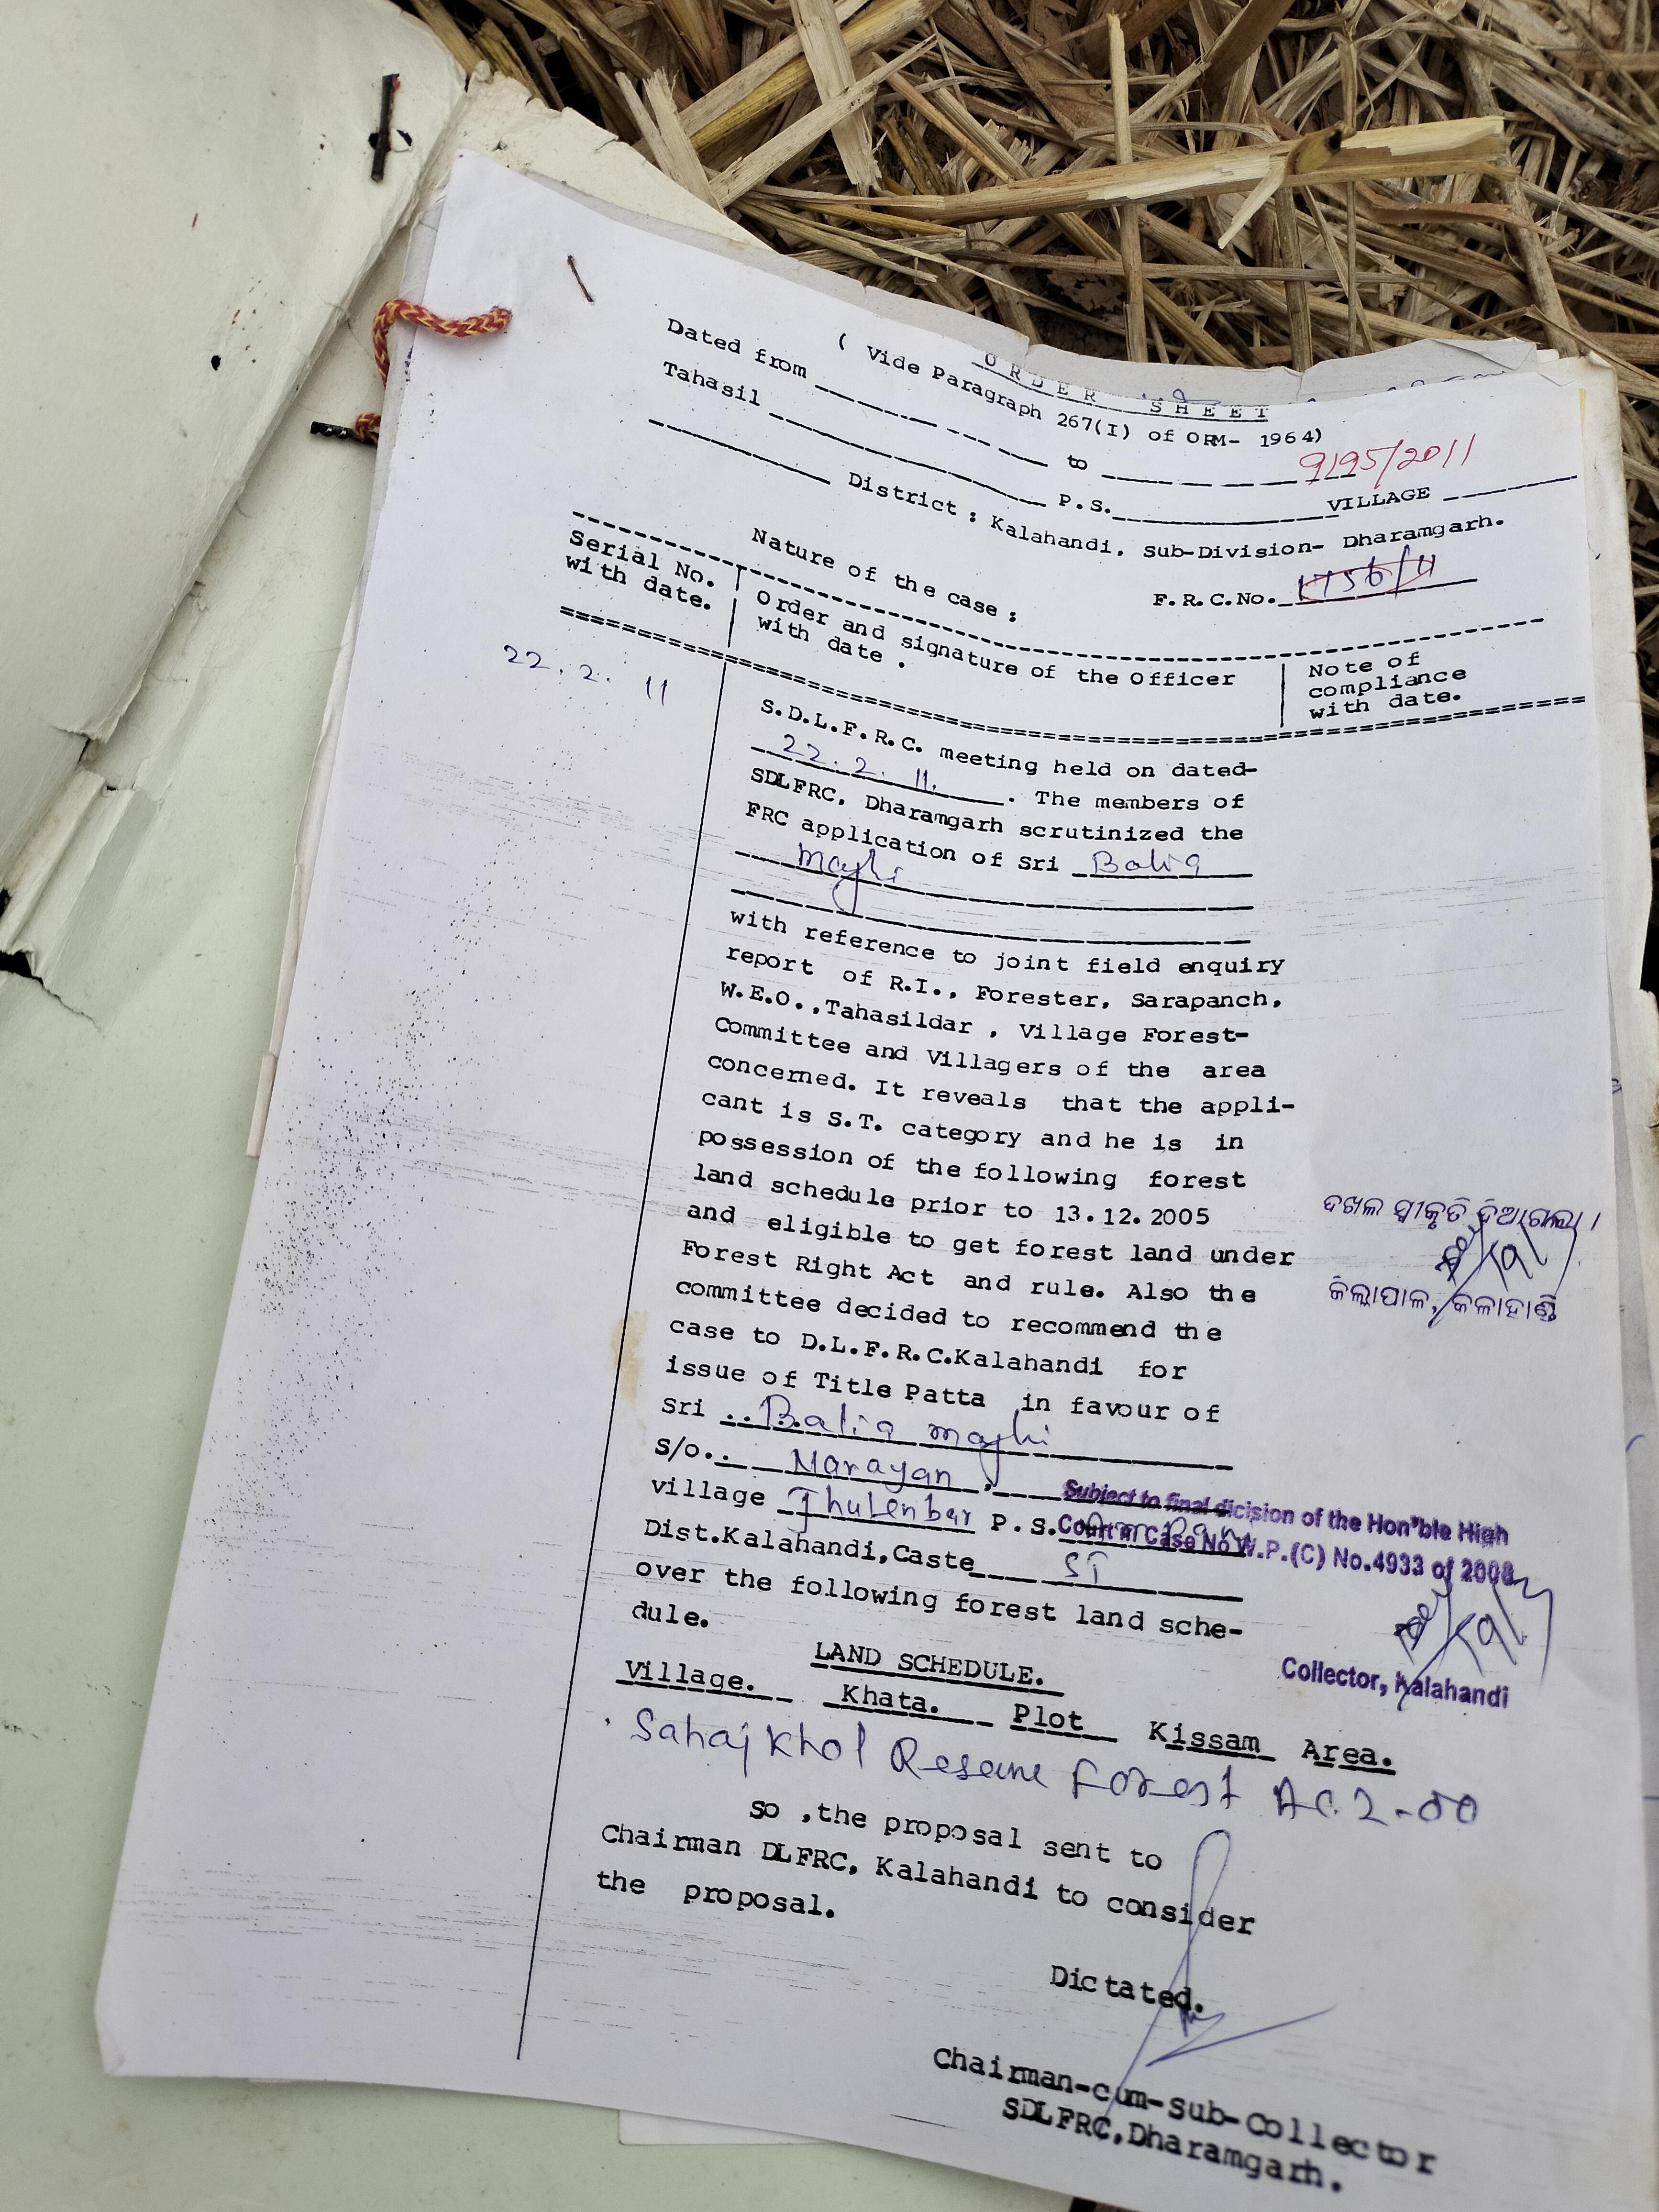 ORDER SHEET
( Vide Paragraph 267(I) of ORM- 1964)
Dated from to 9195/2011
Tahasil P.S. VILLAGE
District : Kalahandi, Sub-Division- Dharamgarh.
Nature of the case : F.R.C.No. 1756/11
Serial No. with date.
Order and signature of the Officer with date .
Note of compliance with date.
22.2.11
S.D.L.F.R.C. meeting held on dated-
22.2.11. . The members of
SDLFRC, Dharamgarh scrutinized the
FRC application of Sri Balia
Majhi
with reference to joint field enquiry
report of R.I., Forester, Sarapanch,
W.E.O.,Tahasildar , Village Forest-
Committee and Villagers of the area
concerned. It reveals that the appli-
cant is S.T. category and he is in
possession of the following forest
land schedule prior to 13.12.2005
and eligible to get forest land under
Forest Right Act and rule. Also the
committee decided to recommend the
case to D.L.F.R.C.Kalahandi for
issue of Title Patta in favour of
Sri .. Balia majhi
S/o.. Narayan ,
village Thulenbar P.S.
Dist.Kalahandi,Caste ST
over the following forest land sche-
dule.
ଦଖଲ ସ୍ୱୀକୃତି ଦିଆଗଲା ।
ଜିଲ୍ଲାପାଳ, କଳାହାଣ୍ଡି
Subject to final dicision of the Hon"ble High
Court in Case No W.P.(C) No.4933 of 2008
Collector, Kalahandi
LAND SCHEDULE.
Village. Khata. Plot Kissam Area.
Sahajkhol Reserve Forest AC.2-00
so ,the proposal sent to
Chairman DLFRC, Kalahandi to consider
the proposal.
Dictated.
Chairman-cum-Sub-Collector
SDLFRC,Dharamgarh.